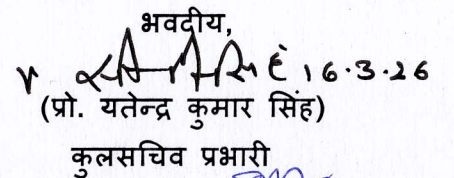 भवदीय,
16.3.26
(प्रो. यतेन्द्र कुमार सिंह)
कुलसचिव प्रभारी